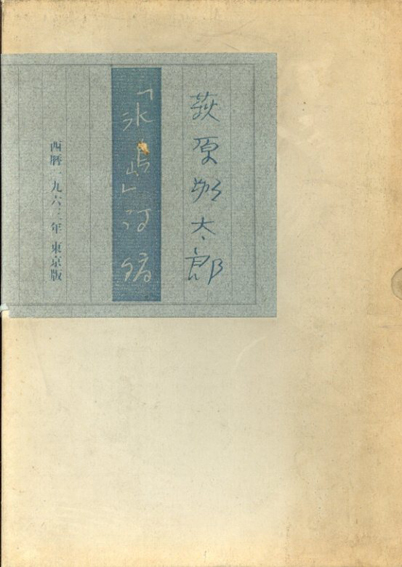 萩原朔太郎
「氷島」詩稿
西暦一九六三年東京版